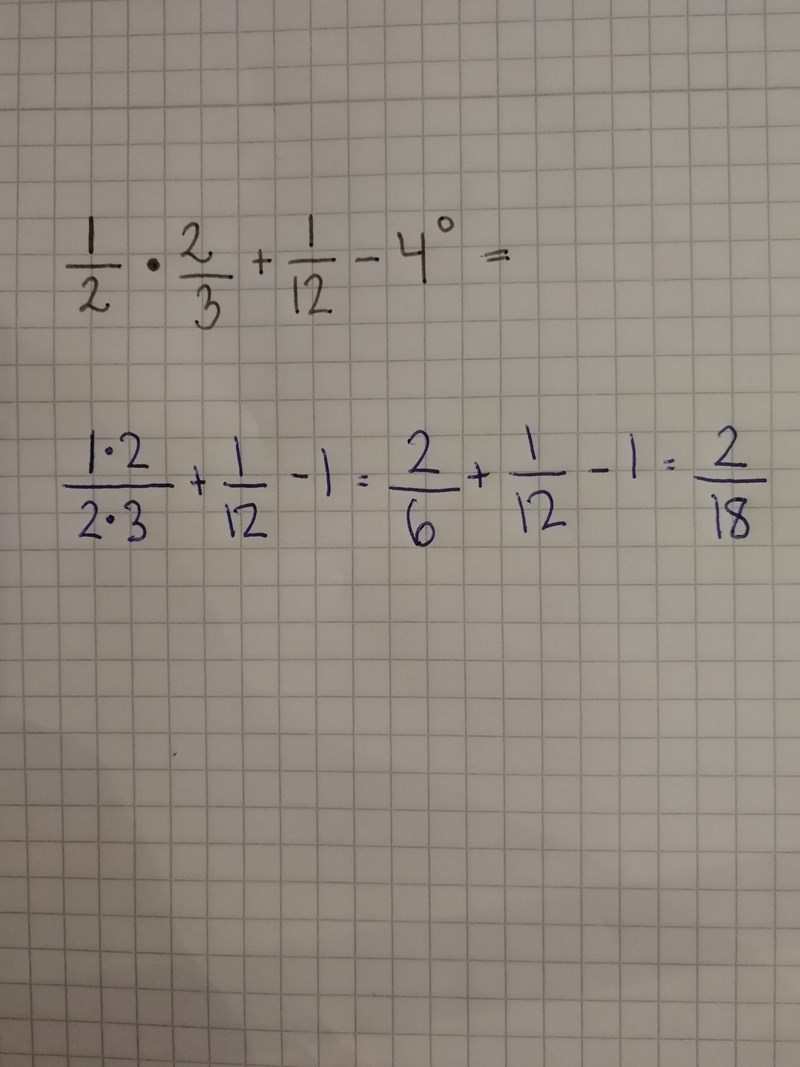 1/2 • 2/3 + 1/12 - 4⁰ =
1•2/2•3 + 1/12 - 1 = 2/6 + 1/12 - 1 = 2/18